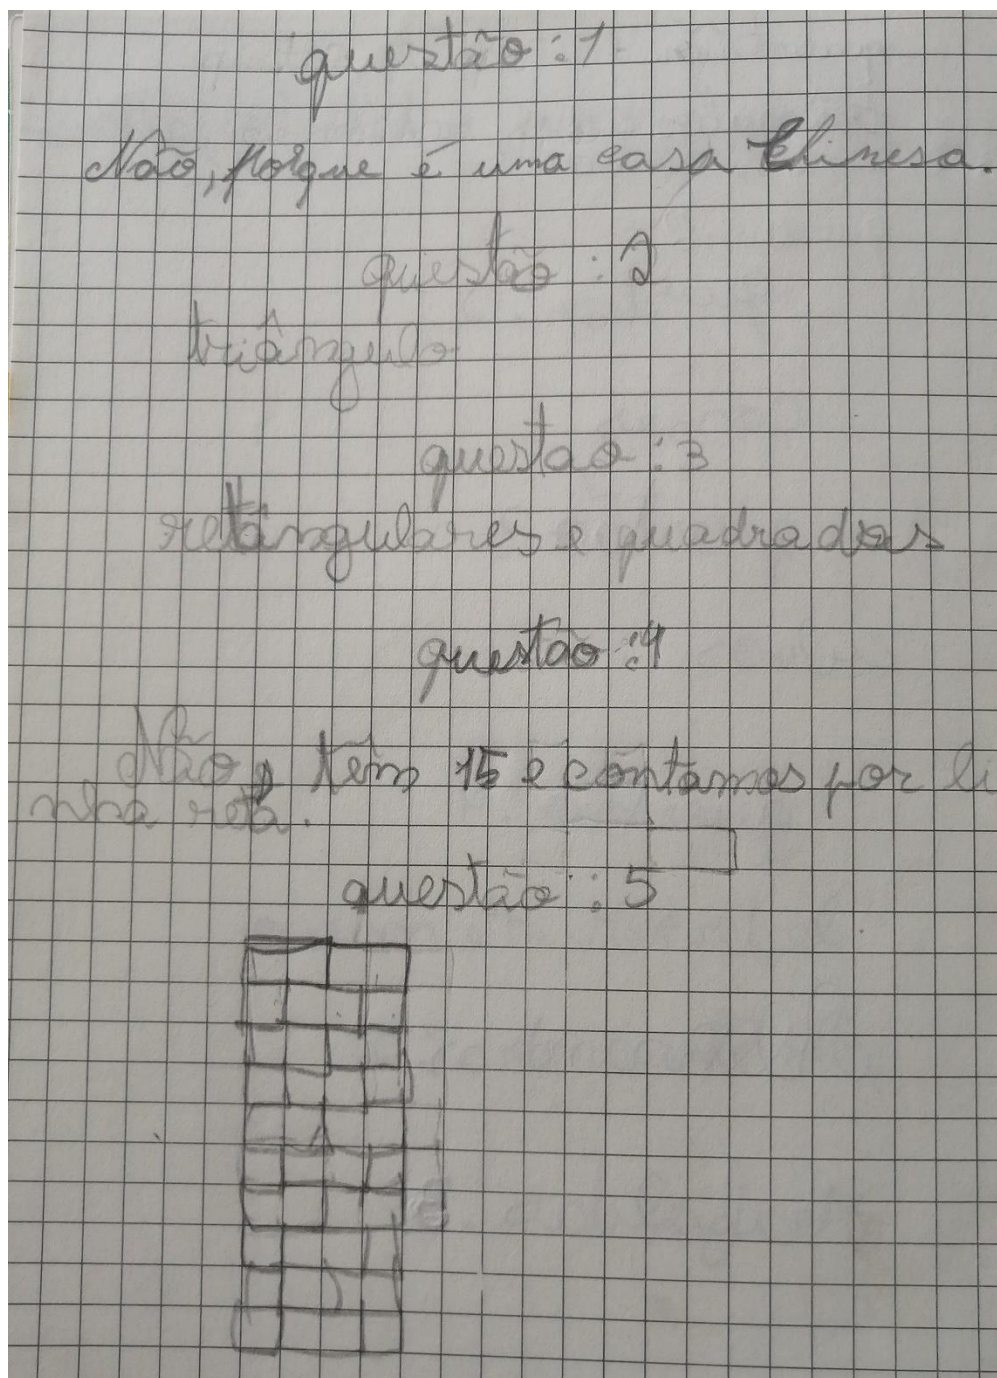 questão : 1
Não, porque é uma casa Chinesa.
questão : 2
triângulo
questão : 3
retângulares e quadrados
questão : 4
Não, têm 15 e contamos por li
nha reta.
questão : 5